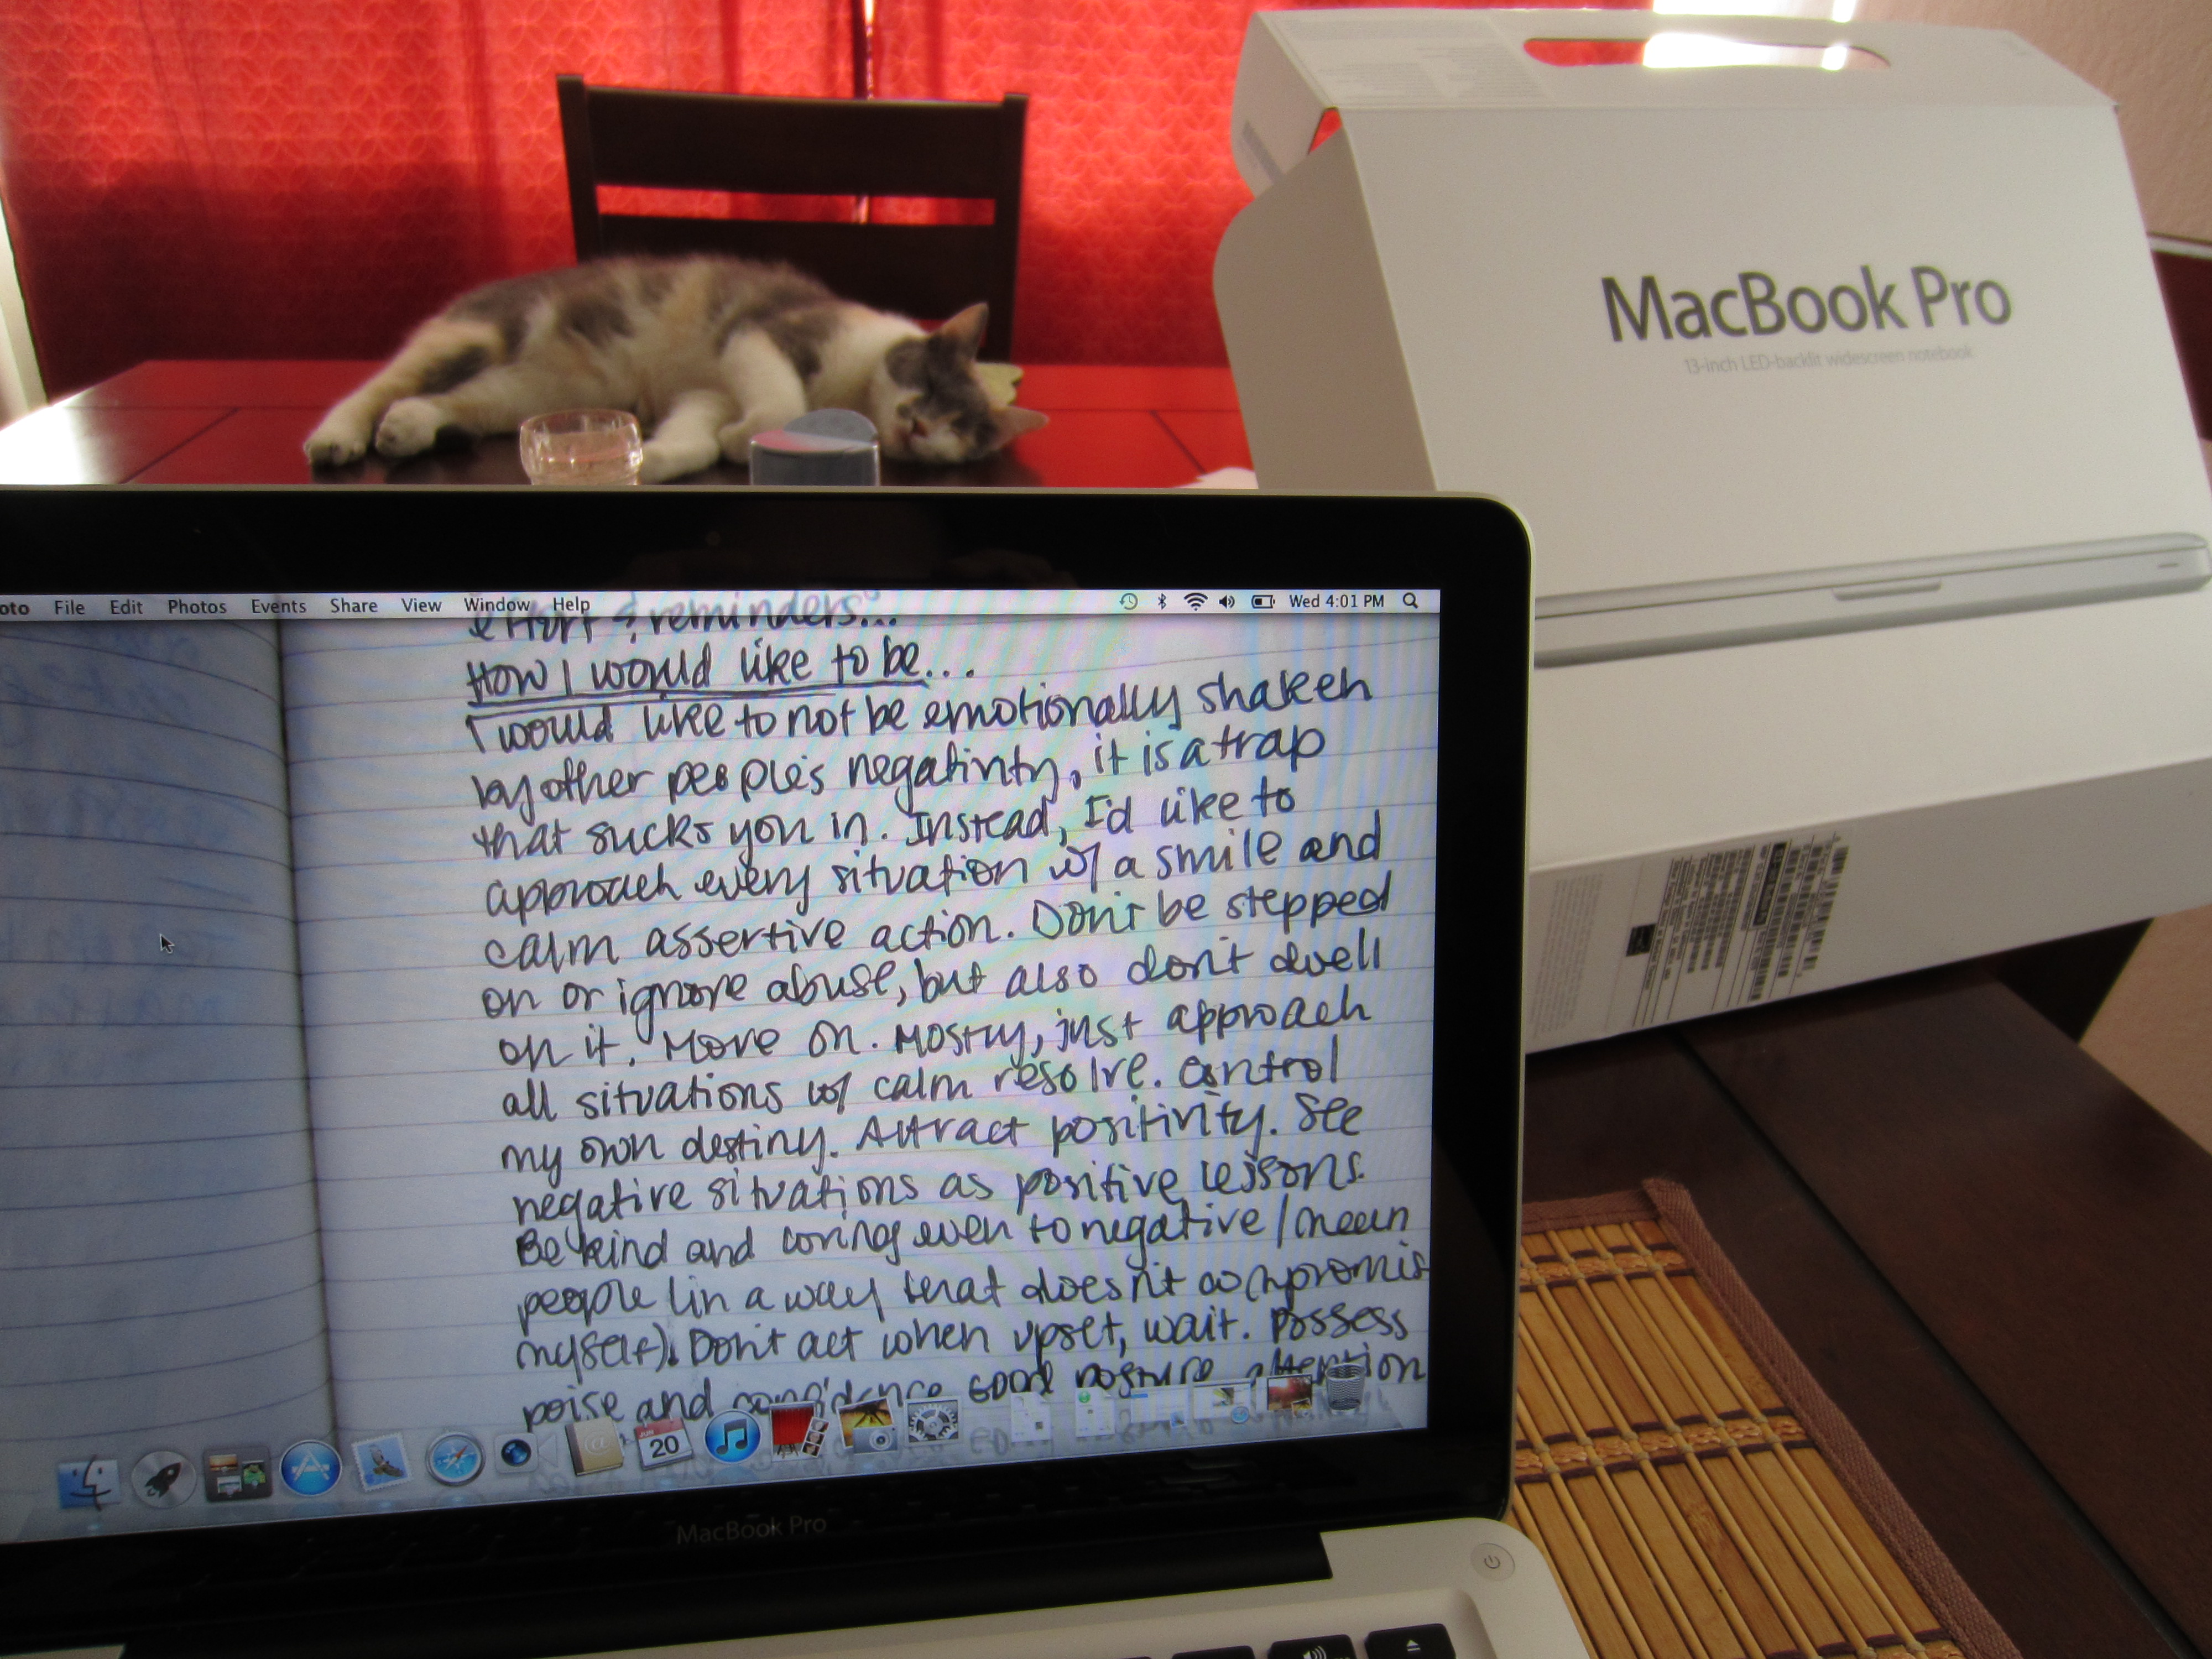 MacBook Pro
13-inch LED-backlit widescreen notebook
oto File Edit Photos Events Share View Window Help Wed 4:01 PM
effort & reminders...
How I would like to be...
I would like to not be emotionally shaken
by other people's negativity, it is a trap
that sucks you in. Instead, I'd like to
approach every situation w/ a smile and
calm assertive action. Don't be stepped
on or ignore abuse, but also don't dwell
on it. Move on. Mostly, just approach
all situations w/ calm resolve. Control
my own destiny. Attract positivity. See
negative situations as positive lessons.
Be kind and loving even to negative/mean
people (in a way that doesn't compromis
myself). Don't act when upset, wait. Possess
poise and confidence good posture attention
JUN
20
MacBook Pro